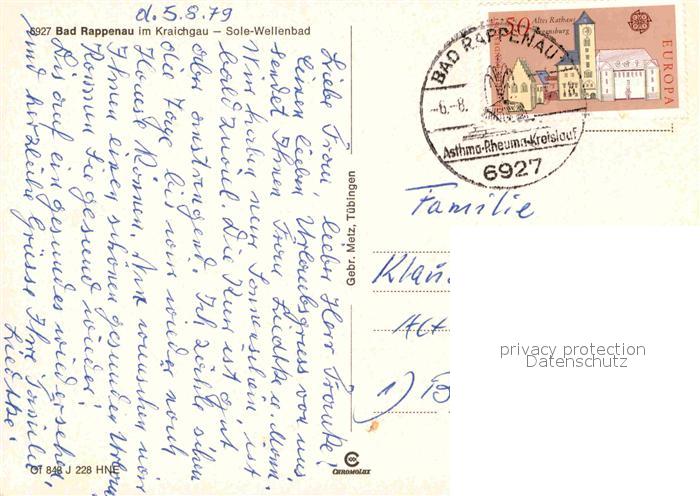 d. 5.8.79
6927 Bad Rappenau im Kraichgau — Sole-Wellenbad
Liebe Frau, lieber Herr Franke,
Einen lieben Urlaubsgruss von uns
sendet Ihnen Frau Liedtke u. Mann.
Wir haben nur Sonnenschein, ist
bald zuviel. Die Kur ist gut
aber anstrengend. Ich zähle schon
die Tage bis wir wieder nach
Hause können. Wir wünschen
Ihnen einen schönen gesunden Urlaub
kommen Sie gesund wieder,
Bis auf ein gesundes wiedersehen,
und herzliche Grüsse Ihre Familie
Liedtke.
CT 848 J 228 HNE
Gebr. Metz, Tübingen
CHROMOLUX
50 Altes Rathaus
Regensburg
EUROPA
BAD RAPPENAU
-6.-8.
Asthma-Rheuma-Kreislauf
6927
Familie
Klau
1)
privacy protection
Datenschutz